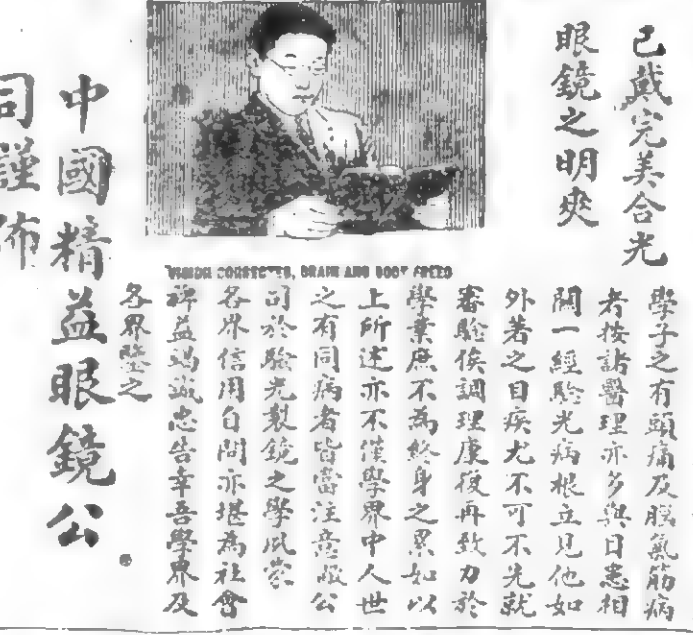 已戴完美合光
眼鏡之明爽
VISION CORRECTED, BRAIN AND BODY FREED
學子之有頭痛及腦氣筋病
者按諸醫理亦多與目患相
關一經驗光病根立見他如
外著之目疾尤不可不先就
審驗俟調理康復再致力於
學業庶不為終身之累如以
上所述亦不僅學界中人世
之有同病者皆當注意敝公
司於驗光製鏡之學夙蒙
各界信用自問亦堪為社會
裨益竭誠忠告幸吾學界及
各界鑒之
中國精益眼鏡公
司謹佈